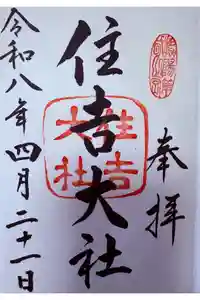 奉拝
住吉大社
住吉
大社
令和八年四月二十一日